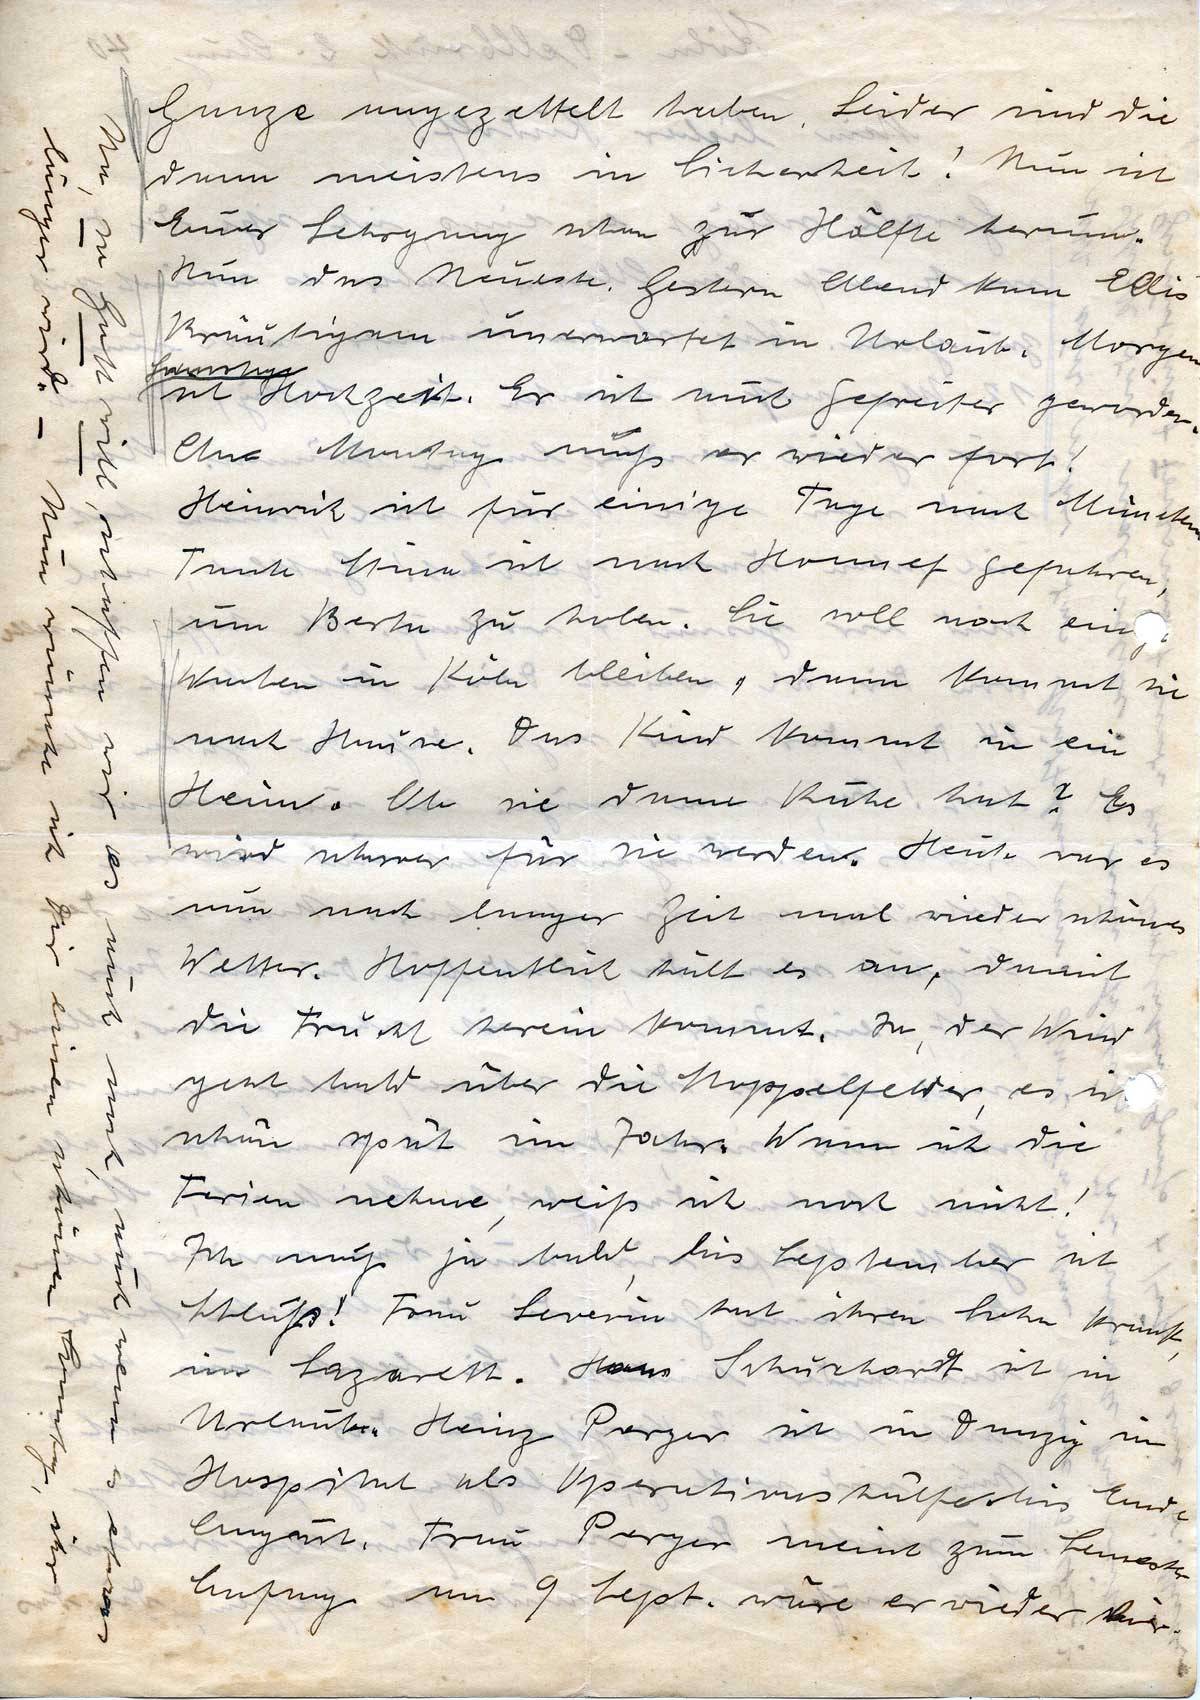 Ganze angezettelt haben. Leider sind die
dann meistens in Sicherheit! Nun ist
Euer Lehrgang schon zur Hälfte herum.
Nun das Neueste. Gestern Abend kam Ellis
Bräutigam unerwartet in Urlaub. Morgen
Samstag
ist Hochzeit. Er ist auch Gefreiter geworden.
Am Montag muß er wieder fort!
Heinrich ist für einige Tage nach München
Tante Stina ist nach Honnef gefahren,
um Berta zu holen. Sie soll noch einige
Wochen in Köln bleiben, dann kommt sie
nach Hause. Das Kind kommt in ein
Heim. Ob sie dann Ruhe hat? Es
wird schwer für sie werden. Heute war es
nun nach langer Zeit mal wieder schönes
Wetter. Hoffentlich hält es an, damit
die Frucht herein kommt. Ja, der Wind
geht bald über die Stoppelfelder, es ist
schon spät im Jahr. Wann ich die
Ferien nehme, weiß ich noch nicht!
Ich muß ja bald, bis September ist
Schluß! Frau Severin hat ihren Sohn krank,
im Lazarett. Hans Schuchardt ist in
Urlaub. Heinz Perger ist in Danzig im
Hospital als Operationshülfe bis Ende
August. Frau Perger meint zum Semester
Anfang am 9 Sept. wäre er wieder hier.
Na, so Gott will, schaffen wir es auch noch, auch wenn es etwas
länger wird. – Nun wünsche ich Dir einen schönen Sonntag,